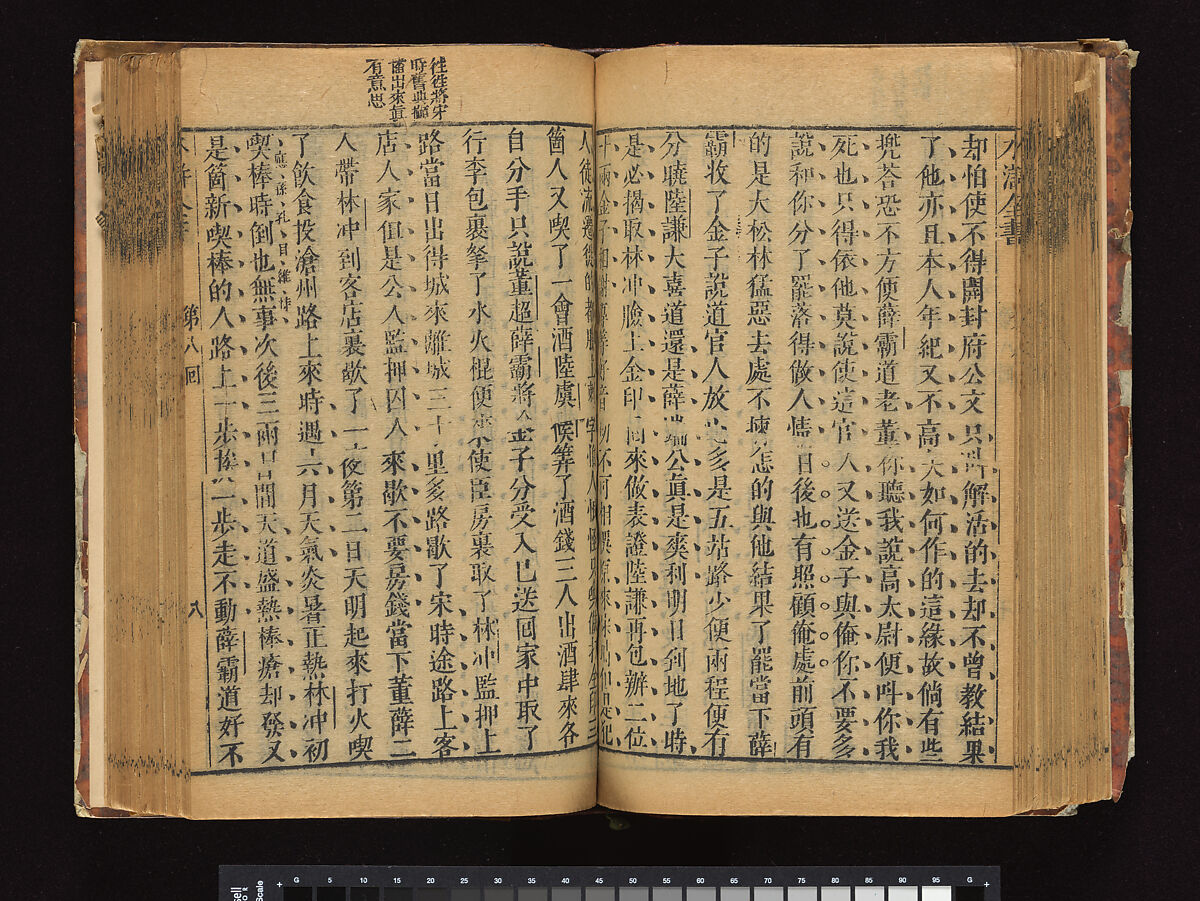 水滸全書
却怕使不得開封府公文只叫解活的去却不曾教結果
了他亦且本人年紀又不高大如何作的這緣故倘有些
兠荅恐不方便薛霸道老董你聽我說高太尉便叫你我
死也只得依他莫說使這官人又送金子與俺你不要多
說和你分了罷落得做人情日後也有照顧俺處前頭有
的是大松林猛惡去處不揀怎的與他結果了罷當下薛
霸收了金子說道官人放心多是五站路少便兩程便有
分曉陸謙大喜道還是薛端公真是爽利明日到地了時
是必揭取林冲臉上金印回來做表證陸謙再包辦二位
十兩金子相謝專等好音切不可相誤原來宋時但是犯
往往將宋
時舊典
出來真
有意思
人徒流遷徙的都臉上刺字怕人恨怪只喚做打金印三
箇人又喫了一會酒陸虞候筭了酒錢三人出酒肆來各
自分手只說董超薛霸將金子分受入已送回家中取了
行李包裹拏了水火棍便來使臣房裏取了林冲監押上
路當日出得城來離城三十里多路歇了宋時途路上客
店人家但是公人監押囚人來歇不要房錢當下董薛二
人帶林冲到客店裏歇了一夜第二日天明起來打火喫
了飲食投滄州路上來時遇六月天氣炎暑正熱林冲初
應、孫、孔、目、維、持、
喫棒時倒也無事次後三兩日間天道盛熱棒瘡却發又
是箇新喫棒的人路上一步挨一步走不動薛霸道好不
第八回
八